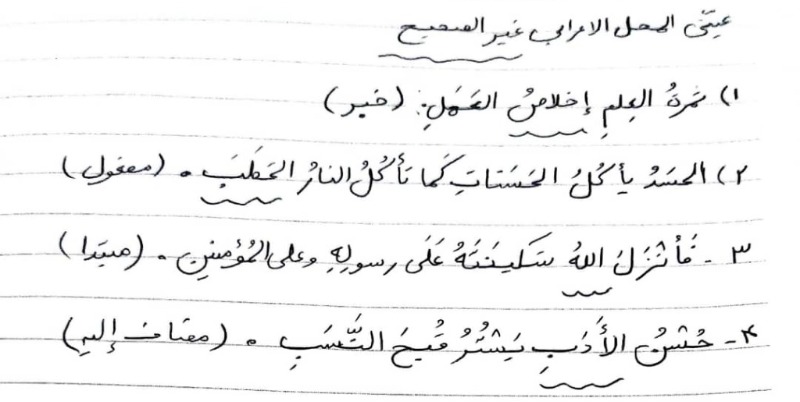 عيّني المحل الاعرابي غير الصحيح
١) ثمرةُ العِلمِ إخلاصُ العَمَلِ: (خبر)
٢) الحسَدُ يأكُلُ الحَسَناتِ كَما تَأكُلُ النارُ الحَطَبَ. (مفعول)
٣- فَأنْزَلَ اللهُ سَكينَتَهُ عَلَی رسولِهِ وعلی المُؤمنينِ. (مبتدا)
۴- حُسْنُ الأَدَبِ يَسْتُرُ قُبْحَ النَّسَبِ. (مضاف إليه)